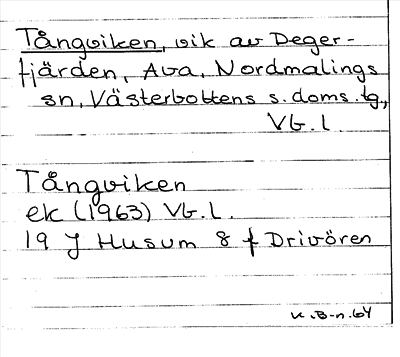 Tångviken, vik av Deger-
fjärden, Ava, Nordmalings
sn, Västerbottens s. doms. tg.,
Vb. l.
Tångviken
ek (1963) Vb. l.
19 J Husum 8 f Drivören
K. B-n. 64